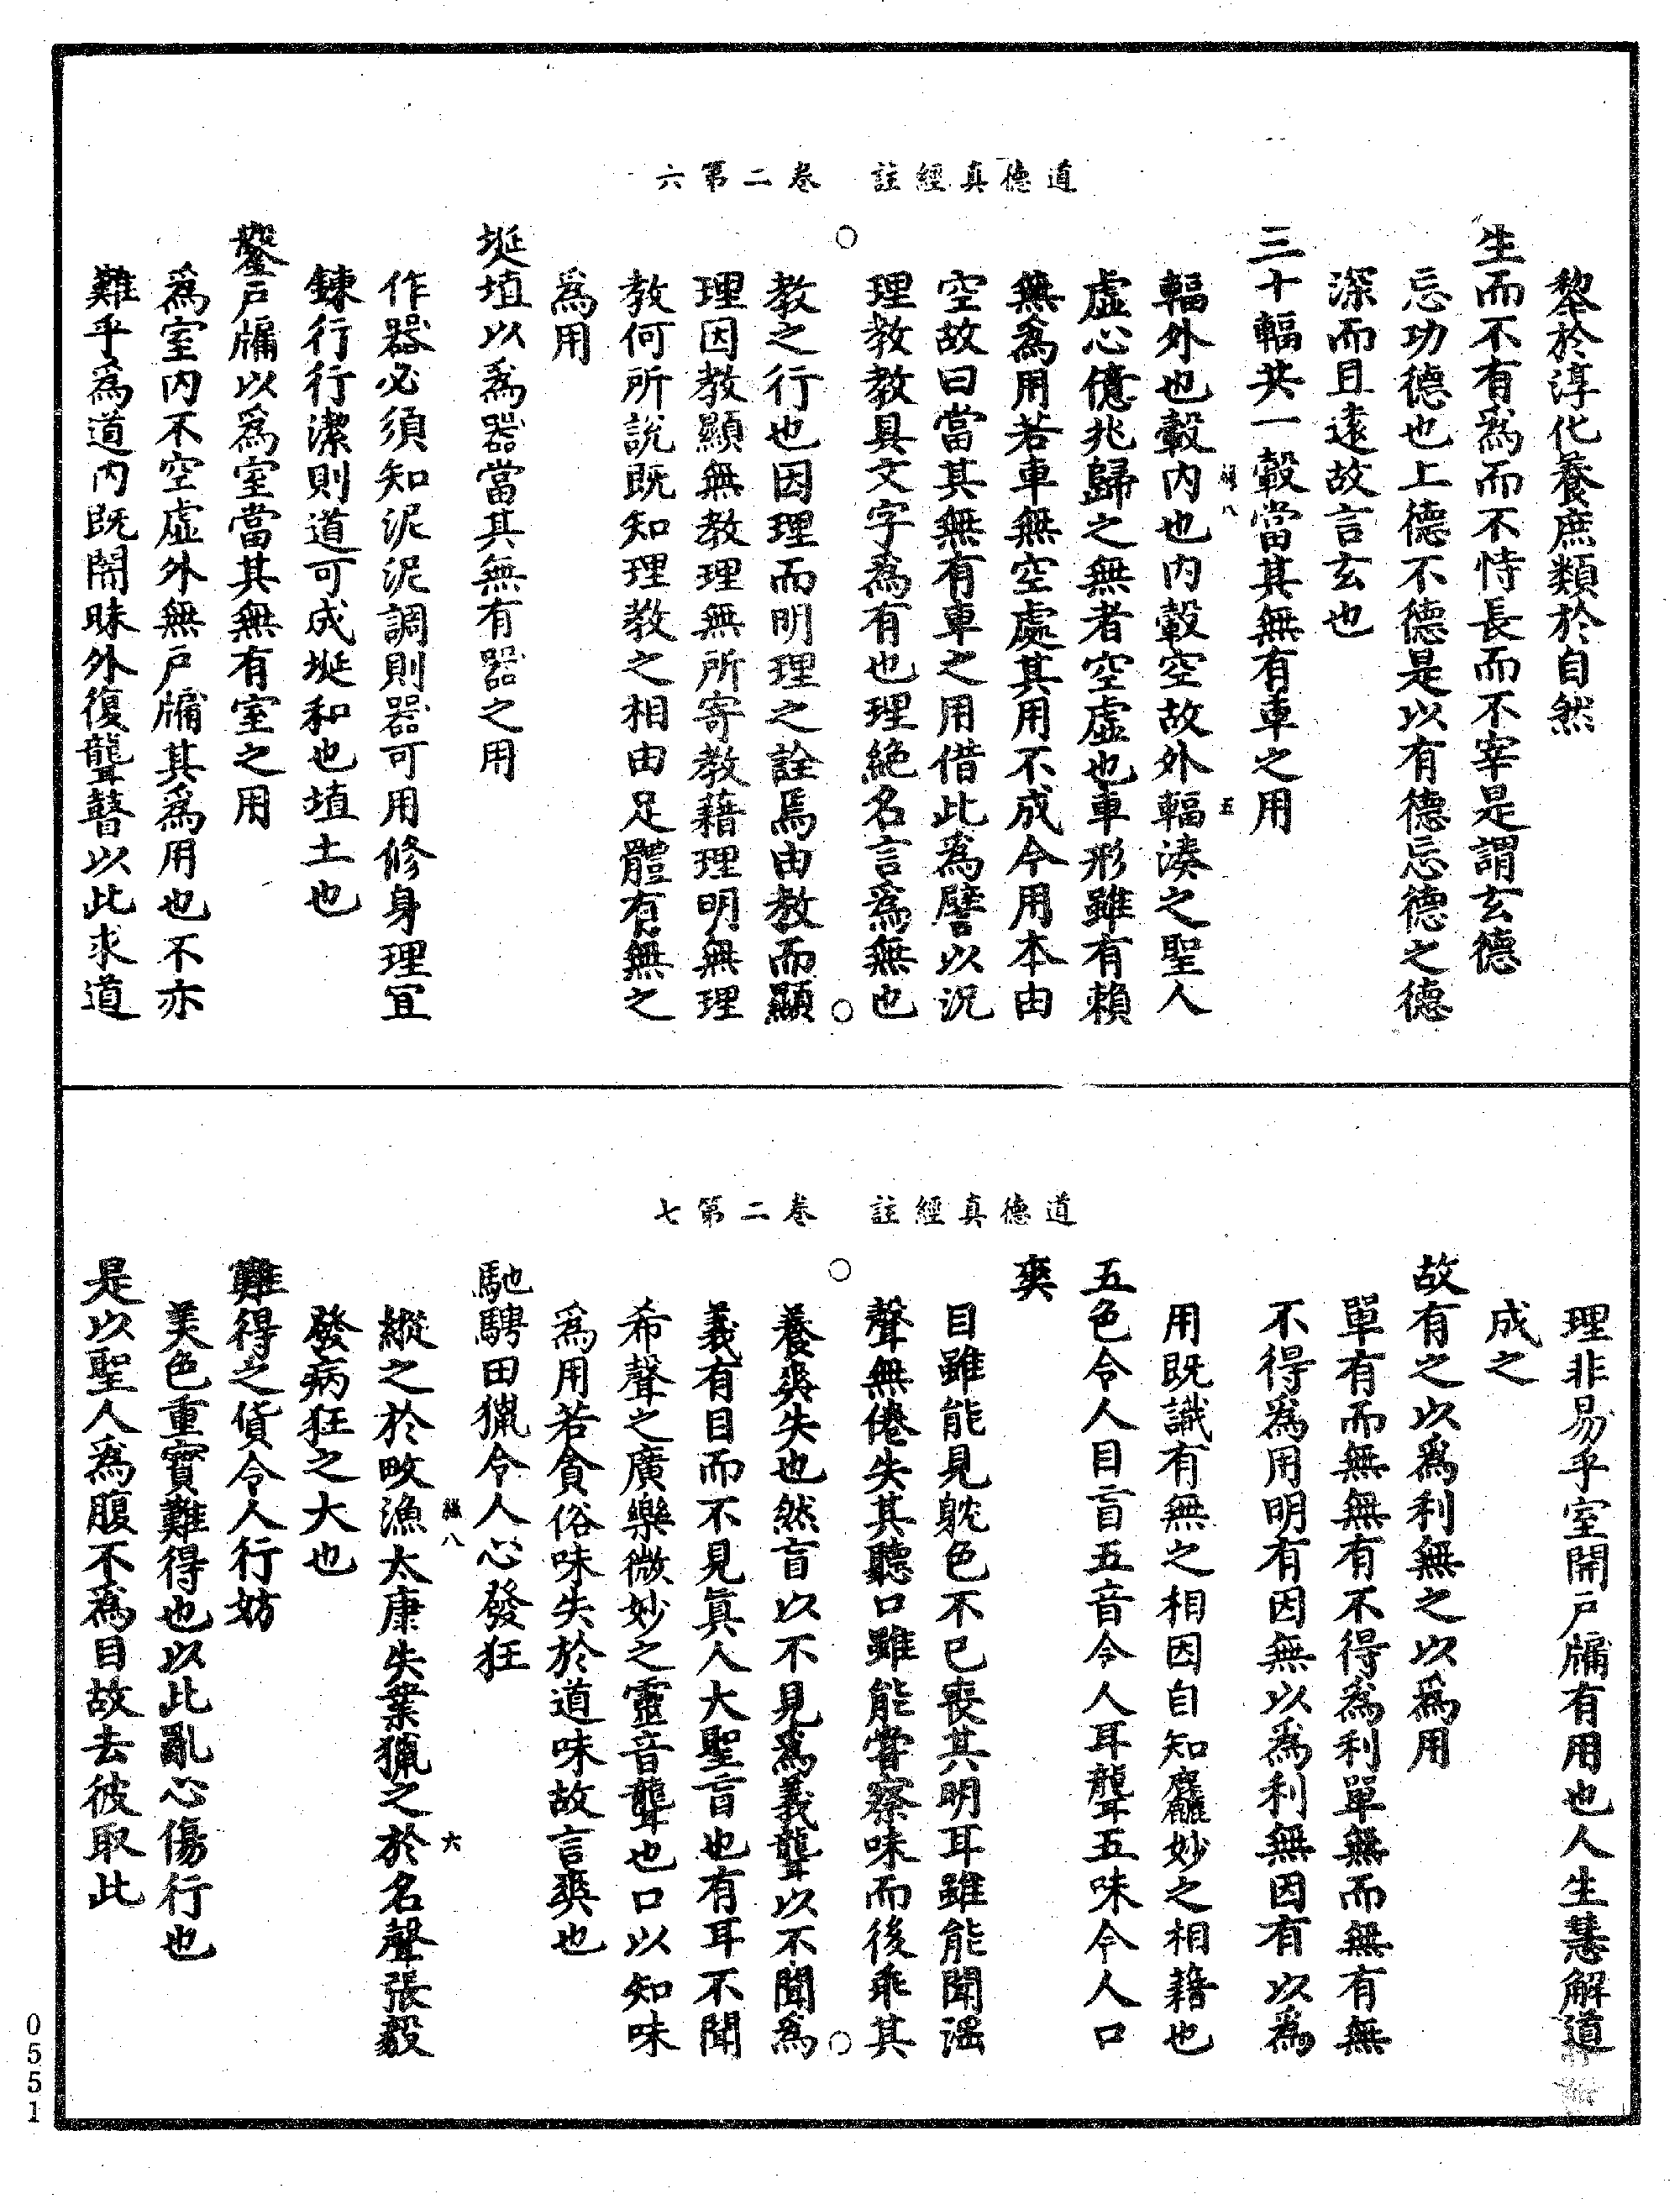 道德真經註　卷二第六
黎於淳化養庶類於自然
生而不有爲而不恃長而不宰是謂玄德
忘功德也上德不德是以有德忘德之德
深而且遠故言玄也
三十輻共一轂當其無有車之用
輻外也轂内也内轂空故外輻湊之聖人
虛心億兆歸之無者空虛也車形雖有賴
無爲用若車無空處其用不成今用本由
空故曰當其無有車之用借此爲譬以況
理教教具文字爲有也理絶名言爲無也
教之行也因理而明理之詮焉由教而顯
理因教顯無教理無所寄教藉理明無理
教何所說既知理教之相由足體有無之
爲用
埏埴以爲器當其無有器之用
作器必須知泥泥調則器可用修身理宜
鍊行行潔則道可成埏和也埴土也
鑿戸牖以爲室當其無有室之用
爲室内不空虛外無戸牖其爲用也不亦
難乎爲道内既闇昧外復聾瞽以此求道
道德真經註　卷二第七
理非易乎室開戸牖有用也人生慧解道
成之
故有之以爲利無之以爲用
單有而無無有不得爲利單無而無有無
不得爲用明有因無以爲利無因有以爲
用既識有無之相因自知麤妙之相藉也
五色令人目盲五音令人耳聾五味令人口
爽
目雖能見躭色不已喪其明耳雖能聞謡
聲無倦失其聽口雖能嘗察味而後乖其
養爽失也然盲以不見爲義聾以不聞爲
義有目而不見真人大聖盲也有耳不聞
希聲之廣樂微妙之靈音聾也口以知味
爲用若貪俗味失於道味故言爽也
馳騁田獵令人心發狂
縱之於畋漁太康失業獵之於名聲張毅
發病狂之大也
難得之貨令人行妨
美色重寶難得也以此亂心傷行也
是以聖人爲腹不爲目故去彼取此
八
五
八
六
0551